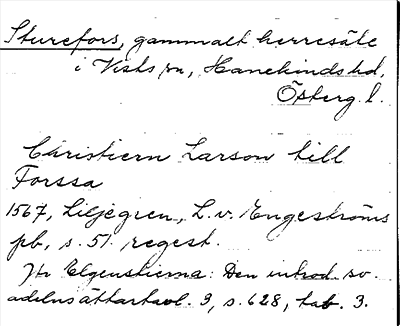 Sturefors, gammalt herresäte
i Vists sn, Hanekinds hd,
Östergl.
Christiern Larson till
Forssa
1567, Liljegren, L. v. Engeströms
pb, s. 51 regest.
Jfr Elgenstierna: Den introd. sv.
adelns ättartavl. 9, s. 628, tab. 3.